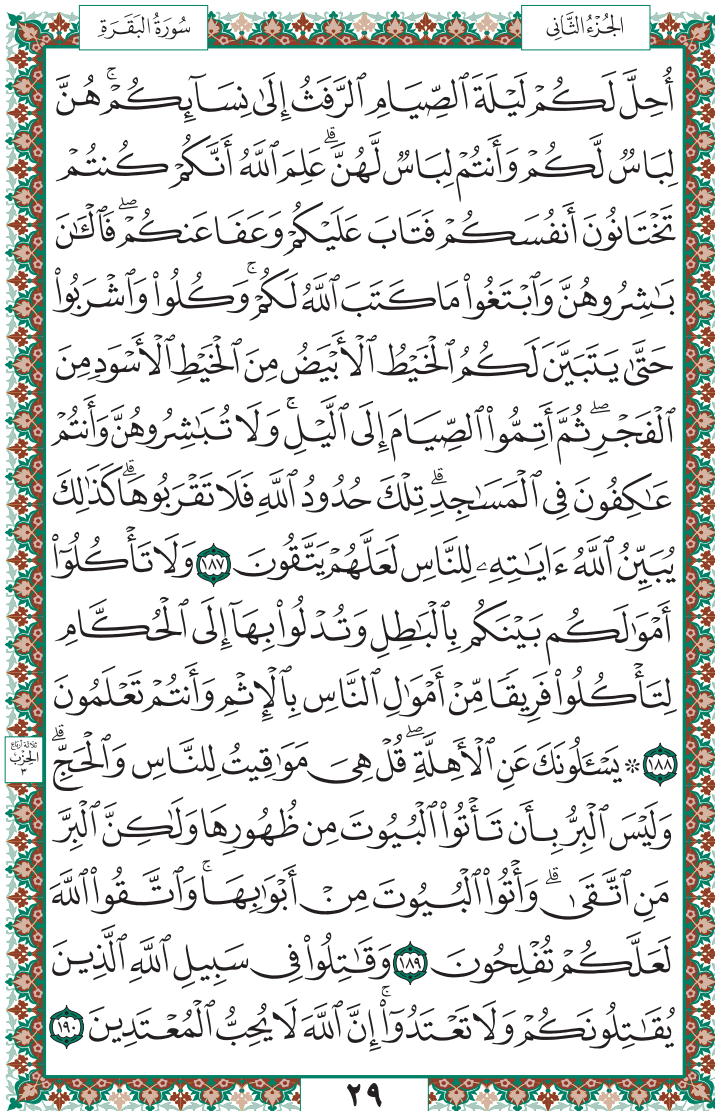 الجُزْءُ الثَّانِي
سُورَةُ البَقَرَةِ
أُحِلَّ لَكُمۡ لَيۡلَةَ ٱلصِّيَامِ ٱلرَّفَثُ إِلَىٰ نِسَآئِكُمۡۚ هُنَّ
لِبَاسٞ لَّكُمۡ وَأَنتُمۡ لِبَاسٞ لَّهُنَّۗ عَلِمَ ٱللَّهُ أَنَّكُمۡ كُنتُمۡ
تَخۡتَانُونَ أَنفُسَكُمۡ فَتَابَ عَلَيۡكُمۡ وَعَفَا عَنكُمۡۖ فَٱلۡـَٰٔنَ
بَٰشِرُوهُنَّ وَٱبۡتَغُواْ مَا كَتَبَ ٱللَّهُ لَكُمۡۚ وَكُلُواْ وَٱشۡرَبُواْ
حَتَّىٰ يَتَبَيَّنَ لَكُمُ ٱلۡخَيۡطُ ٱلۡأَبۡيَضُ مِنَ ٱلۡخَيۡطِ ٱلۡأَسۡوَدِ مِنَ
ٱلۡفَجۡرِۖ ثُمَّ أَتِمُّواْ ٱلصِّيَامَ إِلَى ٱلَّيۡلِۚ وَلَا تُبَٰشِرُوهُنَّ وَأَنتُمۡ
عَٰكِفُونَ فِي ٱلۡمَسَٰجِدِۗ تِلۡكَ حُدُودُ ٱللَّهِ فَلَا تَقۡرَبُوهَاۗ كَذَٰلِكَ
يُبَيِّنُ ٱللَّهُ ءَايَٰتِهِۦ لِلنَّاسِ لَعَلَّهُمۡ يَتَّقُونَ ١٨٧ وَلَا تَأۡكُلُوٓاْ
أَمۡوَٰلَكُم بَيۡنَكُم بِٱلۡبَٰطِلِ وَتُدۡلُواْ بِهَآ إِلَى ٱلۡحُكَّامِ
لِتَأۡكُلُواْ فَرِيقٗا مِّنۡ أَمۡوَٰلِ ٱلنَّاسِ بِٱلۡإِثۡمِ وَأَنتُمۡ تَعۡلَمُونَ
١٨٨ ۞ يَسۡـَٔلُونَكَ عَنِ ٱلۡأَهِلَّةِۖ قُلۡ هِيَ مَوَٰقِيتُ لِلنَّاسِ وَٱلۡحَجِّۗ
ثلاثة أرباع
الحِزْبُ
٣
وَلَيۡسَ ٱلۡبِرُّ بِأَن تَأۡتُواْ ٱلۡبُيُوتَ مِن ظُهُورِهَا وَلَٰكِنَّ ٱلۡبِرَّ
مَنِ ٱتَّقَىٰۗ وَأۡتُواْ ٱلۡبُيُوتَ مِنۡ أَبۡوَٰبِهَاۚ وَٱتَّقُواْ ٱللَّهَ
لَعَلَّكُمۡ تُفۡلِحُونَ ١٨٩ وَقَٰتِلُواْ فِي سَبِيلِ ٱللَّهِ ٱلَّذِينَ
يُقَٰتِلُونَكُمۡ وَلَا تَعۡتَدُوٓاْۚ إِنَّ ٱللَّهَ لَا يُحِبُّ ٱلۡمُعۡتَدِينَ ١٩٠
٢٩